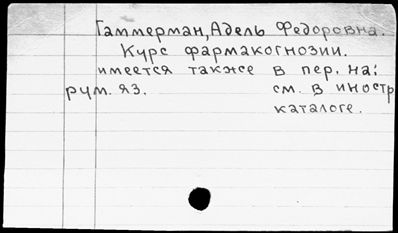 Гаммерман, Адель Федоровна.
Курс фармакогнозии.
имеется также в пер. на:
рум. яз. см. в иностр
каталоге.